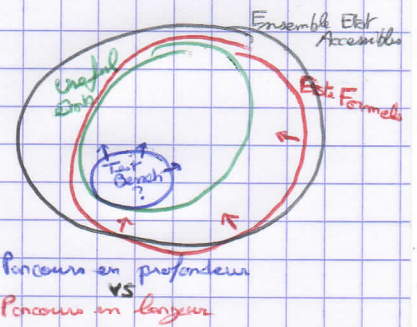 Ensemble Etat
Accessibles
Useful
Este Formels
Test
Bench
?
Parcours en profondeur
VS
Parcours en largeur